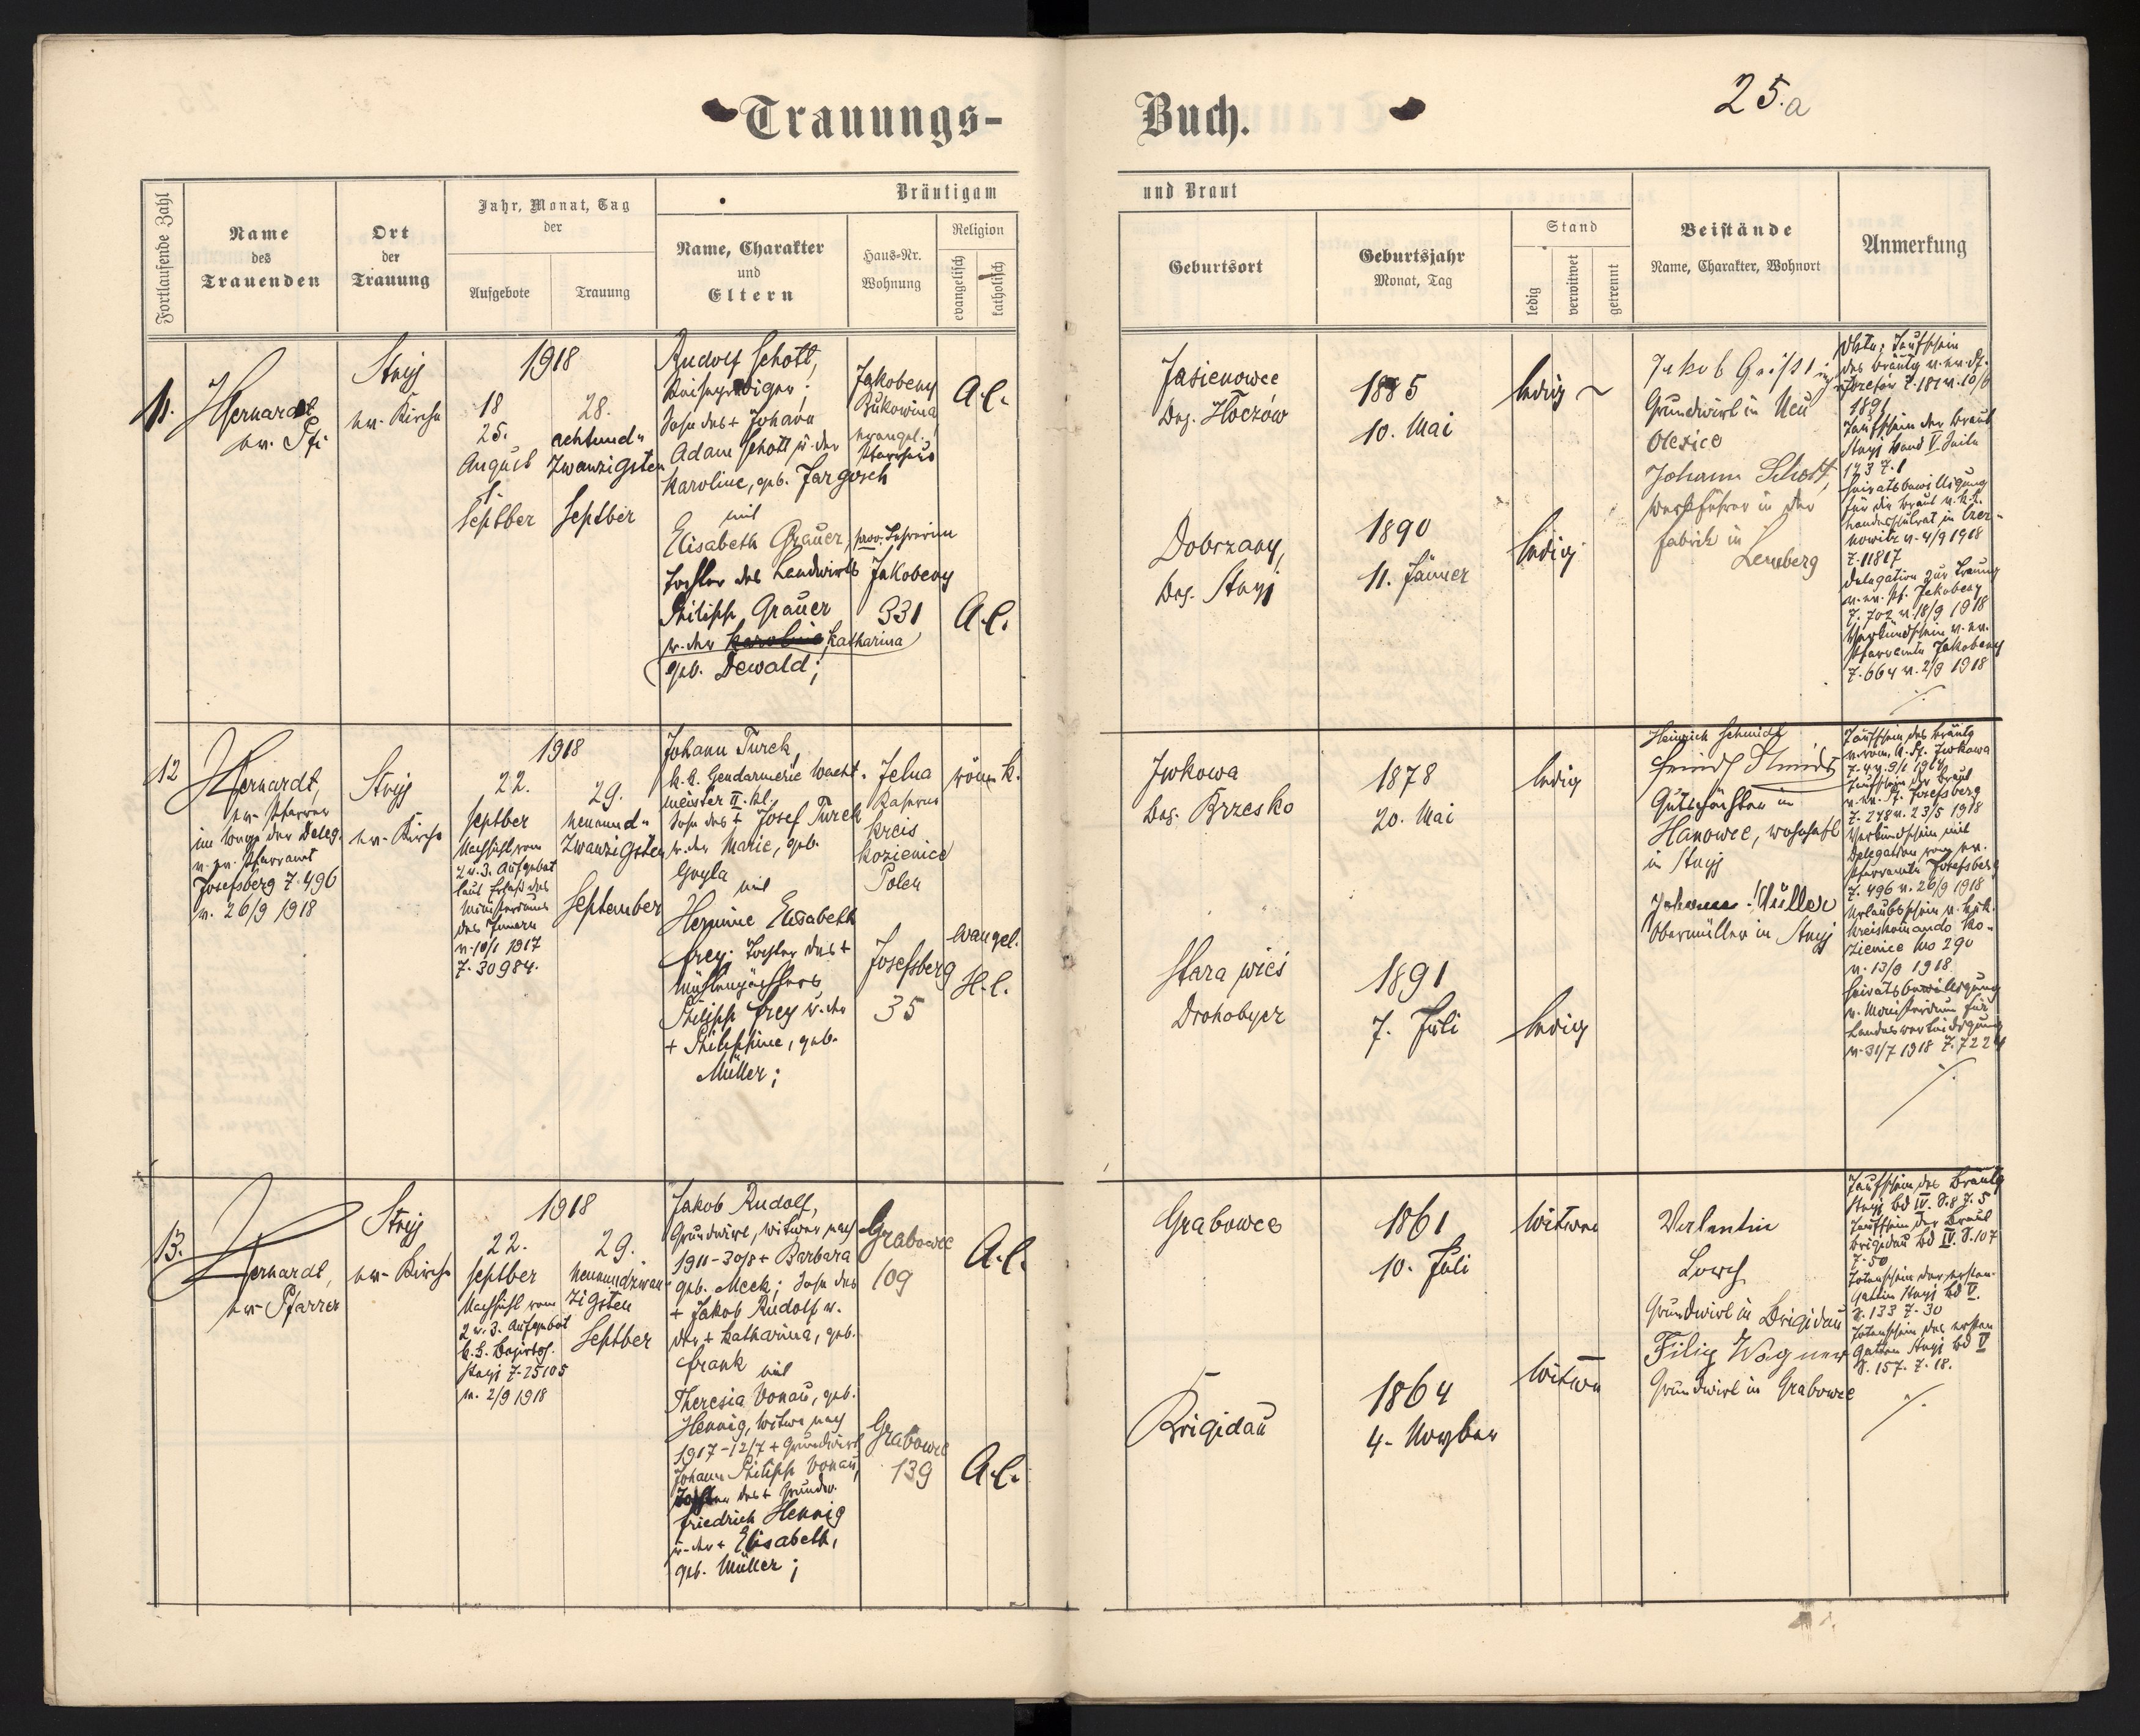 25.a
Trauungs-Buch.
Fortlaufende Zahl
Name
des
Trauenden
Ort
der
Trauung
Jahr, Monat, Tag
der
Aufgebote
Trauung
Bräutigam
und Braut
Name, Charakter
und
Eltern
Haus-Nr.
Wohnung
Religion
evangelisch
katholisch
Geburtsort
Geburtsjahr
Monat, Tag
Stand
ledig
verwitwet
getrennt
Beistände
Name, Charakter, Wohnort
Anmerkung
11.
ev. Pfr
Stryj
ev. Kirche
1918
18
25.
August
1.
Septber
28.
achtund-
zwanzigsten
Septber
Rudolf Schott,
Sohn des + Johann
Adam Schott u. der
Karoline, geb. Jargosch
mit
Elisabeth Grauer, prov. Lehrerin
Tochter des Landwirts
Philipp Grauer
u. der Karoline Katharina
geb. Dewald;
Jakobeny
Bukowina
evangel.
Pfarrhaus
Jakobeny
331
A.C.
A.C.
Jasienowce
Bez.
1885
10. Mai
ledig
Dobrzany,
Bez. Stryj
1890
11. Jänner
ledig
Jakob
Grundwirt in Neu
Olexice
Johann Schott,
Werkführer in der
Fabrik in
Lemberg
1891
Taufschein der Braut
Stryj Band V Seite
143 Z. 1
Heiratsbewilligung
für die Braut v. k.k.
Landesschulrat in Czer-
nowitz v. 4/9 1918
Z. 11817
Delegation zur Trauung
v. ev. Pf. Jakobeny
Z. 702 v. 18/9 1918
Verkündschein v. ev.
Pfarramte Jakobeny
Z. 664 v. 2/9 1918
12
ev. Pfarrer
im Wege der Deleg.
v. ev. Pfarramt
Josefsberg Z. 496
v. 26/9 1918
Stryj
ev. Kirche
1918
22.
Septber
Nachsicht vom
2 u. 3. Aufgebot
laut Erlaß des
Ministeriums
des Innern
v. 10/1 1917
Z. 30984.
29.
neunund-
zwanzigsten
September
Johann Turek,
k.k. Gendarmerie Wacht-
meister II. Kl.
Sohn des + Josef Turek
u. der Marie, geb.
mit
Hermine Elisabeth
Frey, Tochter des +
Mühlenpächters
Philipp Frey u. der
+ Philippine, geb.
Müller;
Jelna
Kaserne
Kreis
Kozienice
Polen
Josefsberg
35
röm. k.
evangel.
H.C.
Jwkowa
Bez. Brzesko
1878
20. Mai
ledig
Stara wieś
Drohobycz
1891
7. Juli
ledig
Heinrich Schmidt
Gutspächter in
Hanowce, wohnhaft
in Stryj
Johann Müller
Obermüller in Stryj
Taufschein des Bräutg
v. röm. k. Pf. Jwkowa
Taufschein der Braut
v. ev. Pf. Josefsberg
Z. 278 v. 23/5 1918
Verkündschein mit
Delegation vom ev.
Pfarramte Josefsberg
Z. 496 v. 26/9 1918
Urlaubsschein v. k.u.k.
Kreiskomando Ko-
zienice No 290
v. 13/9 1918
Heiratsbewilligung
v. Ministerium für
Landesverteidigung
13.
ev. Pfarrer
Stryj
ev. Kirche
1918
22.
Septber
Nachsicht vom
2 u. 3. Aufgebot
k.k. Bezirksh.
Stryj Z. 25105
v. 2/9 1918
29.
neunundzwan-
zigsten
Septber
Jakob Rudolf,
Grundwirt, Witwer nach
1911-30/8 + Barbara
geb. Meck; Sohn des
+ Jakob Rudolf u.
der + Katharina, geb.
Frank
mit
Theresia Vonau, geb.
Hennig, Witwe nach
1917-12/7 + Grundwirt
Johann Philipp Vonau,
Tochter des + Grundw.
Friedrich Hennig
u. der + Elisabeth,
geb. Müller;
Grabowce
109
Grabowce
139
A.C.
A.C.
Grabowce
1861
10. Juli
Witwer
Brigidau
1864
4. Novber
Witwe
Valentin
Grundwirt in Brigidau
Filip Wagner
Grundwirt in Grabowce
Taufschein des Bräutg
Stryj Bd IV. S. 8 Z. 5
Taufschein der Braut
Brigidau Bd IV. S. 107
Z. 50
Totenschein der ersten
Gattin Stryj Bd V.
S. 133 Z. 30
Totenschein des ersten
Gatten Stryj Bd V
S. 157. Z. 18.